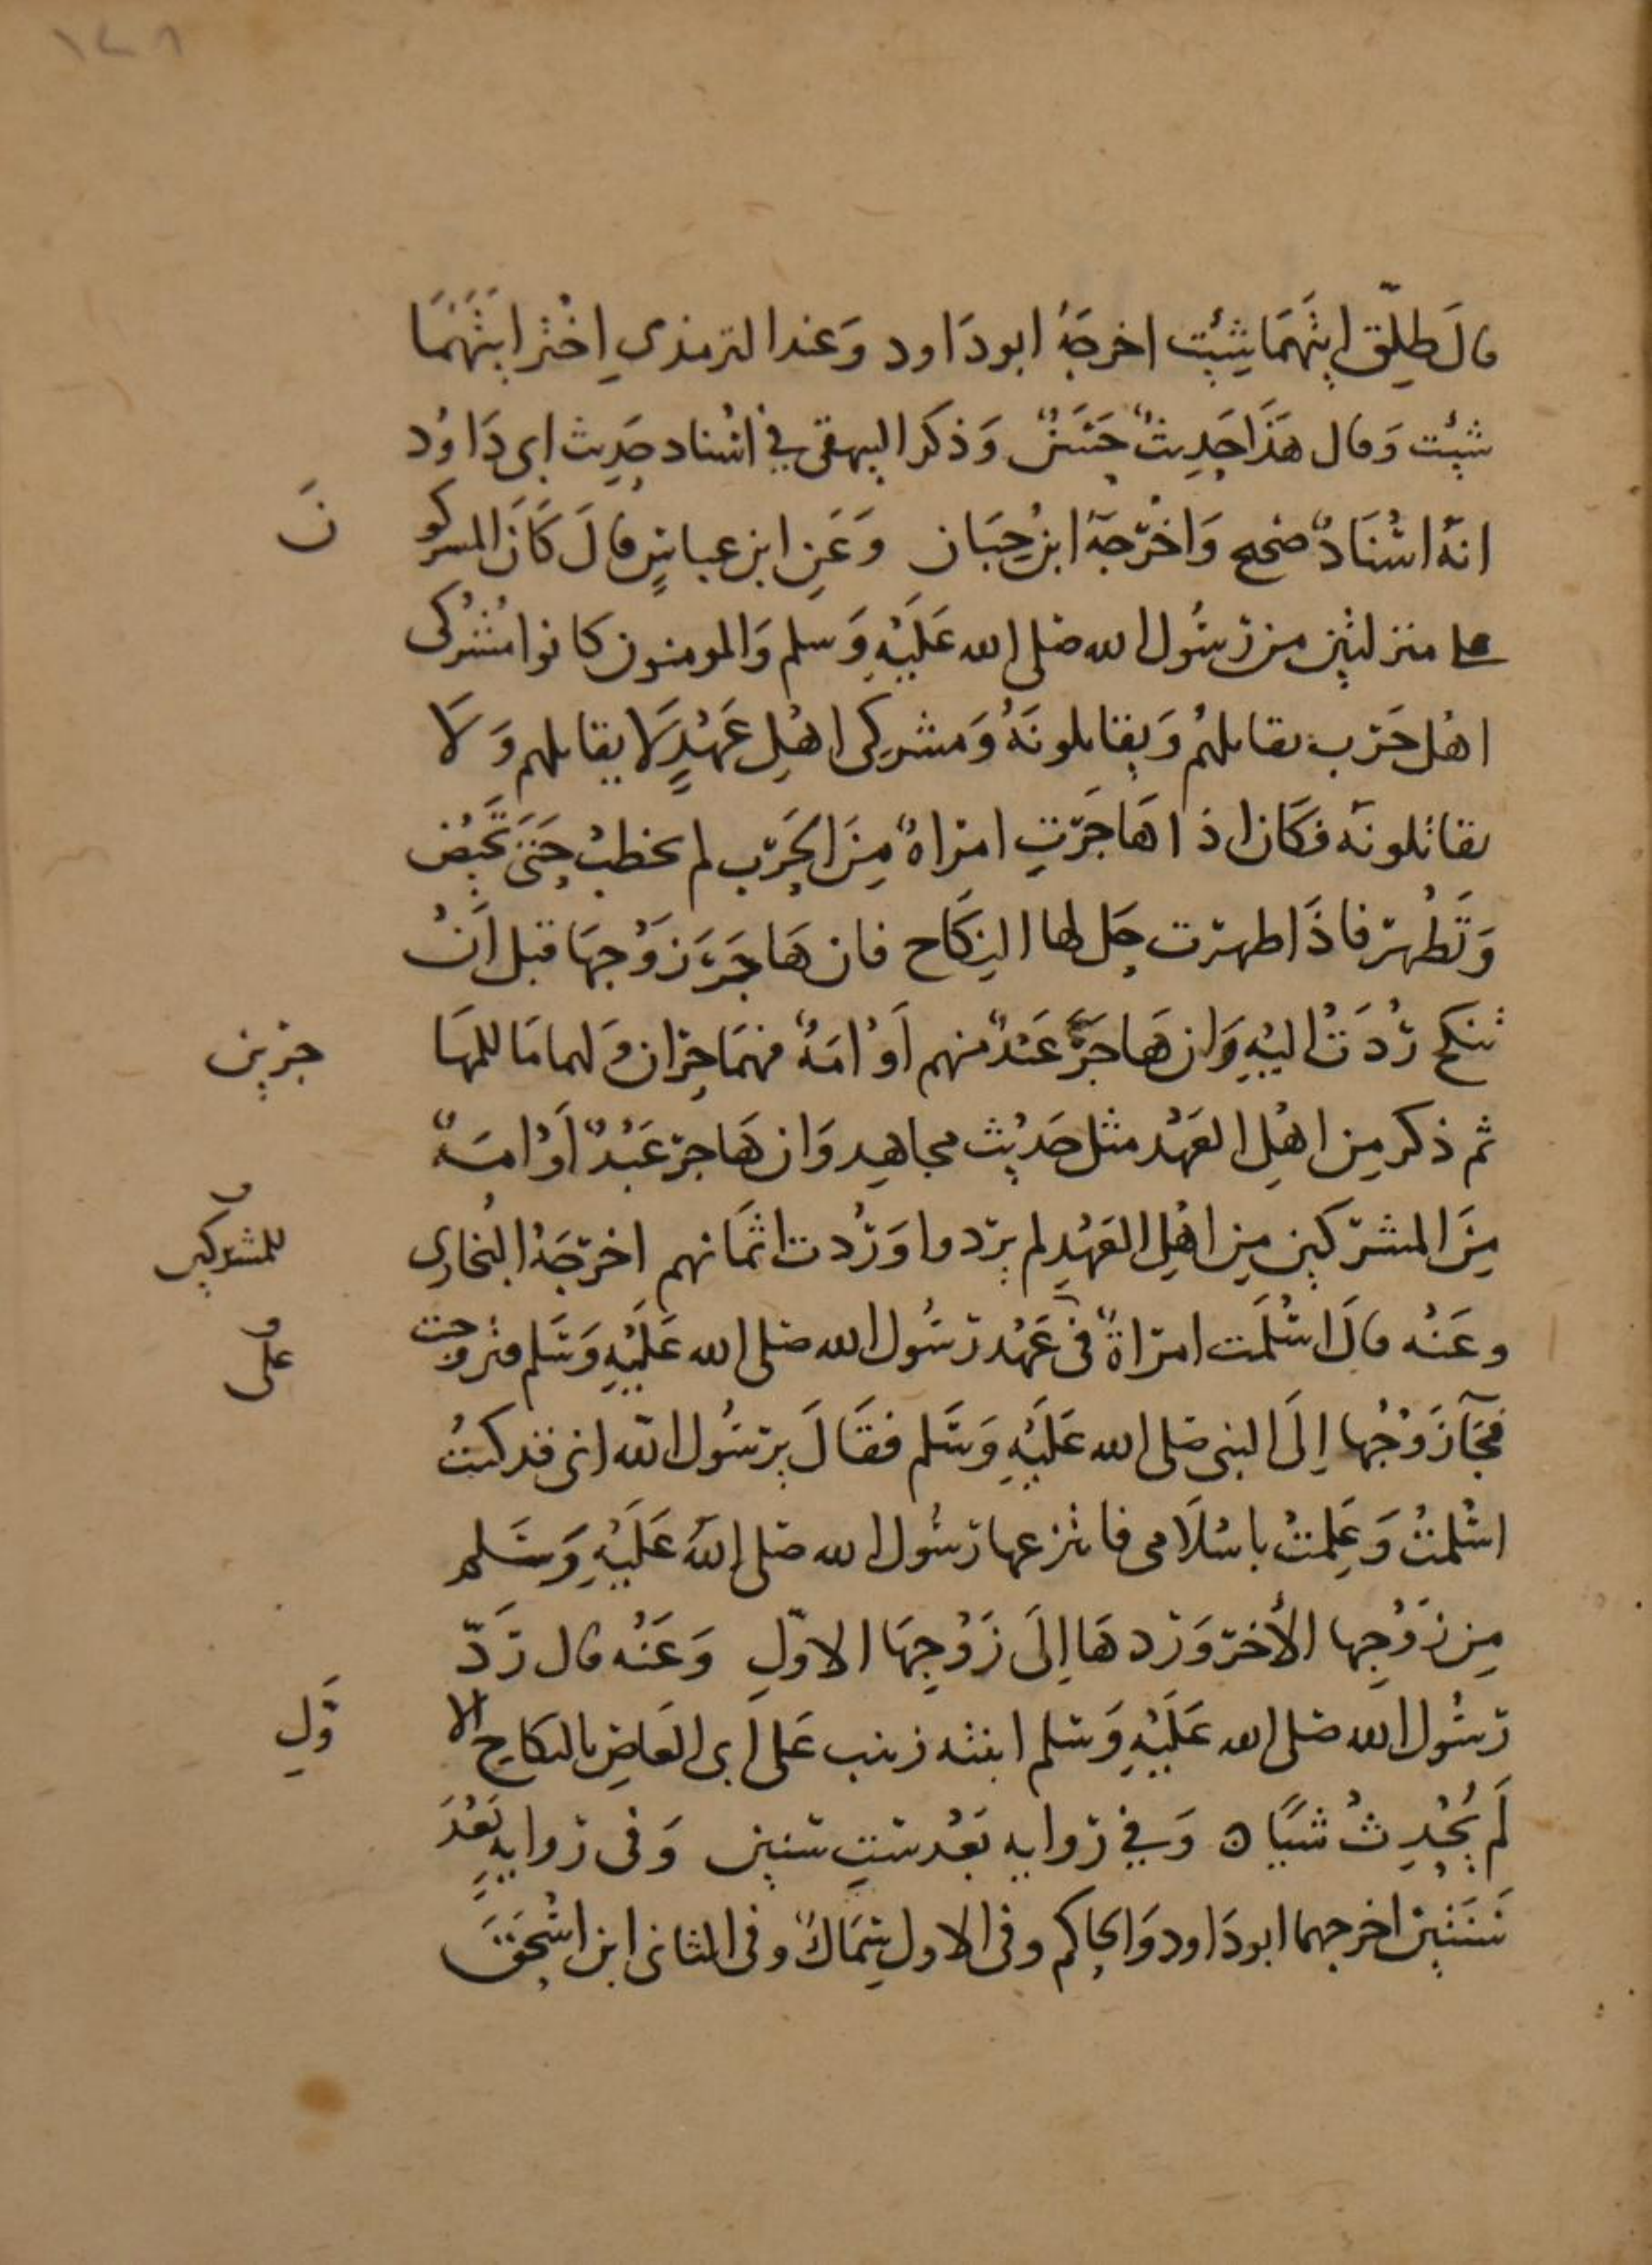 ١٤٨
قال طلق ايتهما شئت اخرجه ابو داود وعند الترمذي اختر ايتهما
شئت وقال هذا حديث حسن وذكر البيهقي في اسناد حديث ابي داود
انه اسناد صحيح واخرجه ابن حبان وعن ابن عباس قال كان المشركو
ن
على منزلتين من رسول الله صلى الله عليه وسلم والمومنون كانوا مشركى
اهل حرب يقاتلهم ويقاتلونه ومشركى اهل عهد لا يقاتلهم ولا
يقاتلونه فكان اذا هاجرت امراة من الحرب لم تخطب حتى تحيض
وتطهر فاذا طهرت حل لها النكاح فان هاجر زوجها قبل ان
تنكح ردت اليه وان هاجر عبد منهم او امة فهما حران ولهما ما للمها
جرين
ثم ذكر من اهل العهد مثل حديث مجاهد وان هاجر عبد او امة
من المشركين من اهل العهد لم يردوا وردت اثمانهم اخرجه البخاري
للمشركين
وعنه قال اسلمت امراة في عهد رسول الله صلى الله عليه وسلم فتزوجت
على
فجآ زوجها إلى النبي صلى الله عليه وسلم فقال يرسول الله انى قد كنت
اسلمت وعلمت باسلامى فانتزعها رسول الله صلى الله عليه وسلم
من زوجها الأخر وردها إلى زوجها الاول وعنه قال ردّ
رسول الله صلى الله عليه وسلم ابنته زينب على ابى العاص بالنكاح الا
ول
لم يحدث شيا ه وفي رواية بعد ست سنين وفى رواية بعد
سنتين اخرجهما ابو داود والحاكم وفى الاول سماك وفى الثانى ابن اسحق